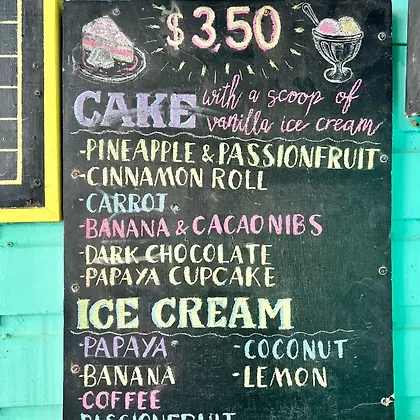 $3.50
CAKE with a scoop of
vanilla ice cream
-PINEAPPLE & PASSIONFRUIT
-CINNAMON ROLL
-CARROT
-BANANA & CACAO NIBS
-DARK CHOCOLATE
-PAPAYA CUPCAKE
ICE CREAM
-PAPAYA -COCONUT
-BANANA -LEMON
-COFFEE
PASSIONFRUIT